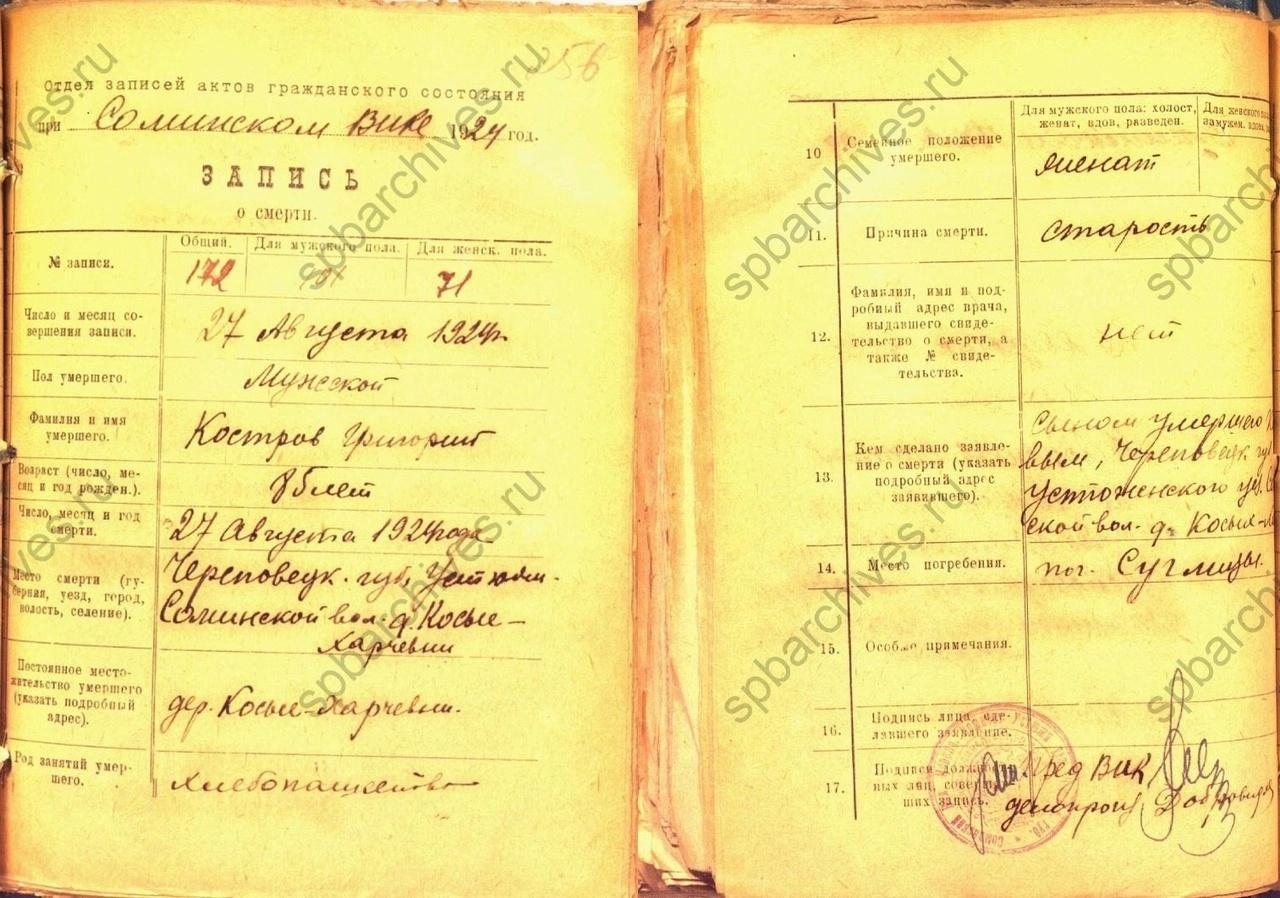 256
Отдел записей актов гражданского состояния
при Соминском ВИКе 1924 год.
ЗАПИСЬ
о смерти.
№ записи.
Общий. Для мужского пола. Для женск. пола.
172 101 71
Число и месяц со-
вершения записи.
27 Августа 1924 г.
Пол умершего.
Мужской
Фамилия и имя
умершего.
Костров Григорий
Возраст (число, ме-
сяц и год рожден.).
лет
Число, месяц и год
смерти.
27 Августа 1924 года
Место смерти (гу-
берния, уезд, город,
волость, селение).
Череповецк. губ, Устюжн.
Соминской вол. д. Косые-
Харчевни
Постоянное место-
жительство умершего
(указать подробный
адрес).
дер. Косые-Харчевни.
Род занятий умер-
шего.
хлебопашество
10
Семейное положение
умершего.
Для мужского пола: холост,
женат, вдов, разведен.
Для женского
замужем, вдова,
женат
11.
Причина смерти.
старость
12.
Фамилия, имя и под-
робный адрес врача,
выдавшего свиде-
тельство о смерти, а
также № свиде-
тельства.
нет
13.
Кем сделано заявле-
ние о смерти (указать
подробный адрес
заявившего).
сыном умершего
вым, Череповецк. гу
Устюженского уез. С
ской вол. д. Косые-
14.
Место погребения.
пог. Суглицы.
15.
Особые примечания.
16.
Подпись лица, сде-
лавшего заявление.
17.
Подписи должност
ных лиц, соверш
ших запись.
Пред ВИК
делопроиз
spbarchives.ru
spbarchives.ru
spbarchives.ru
spbarchives.ru
spbarchives.ru